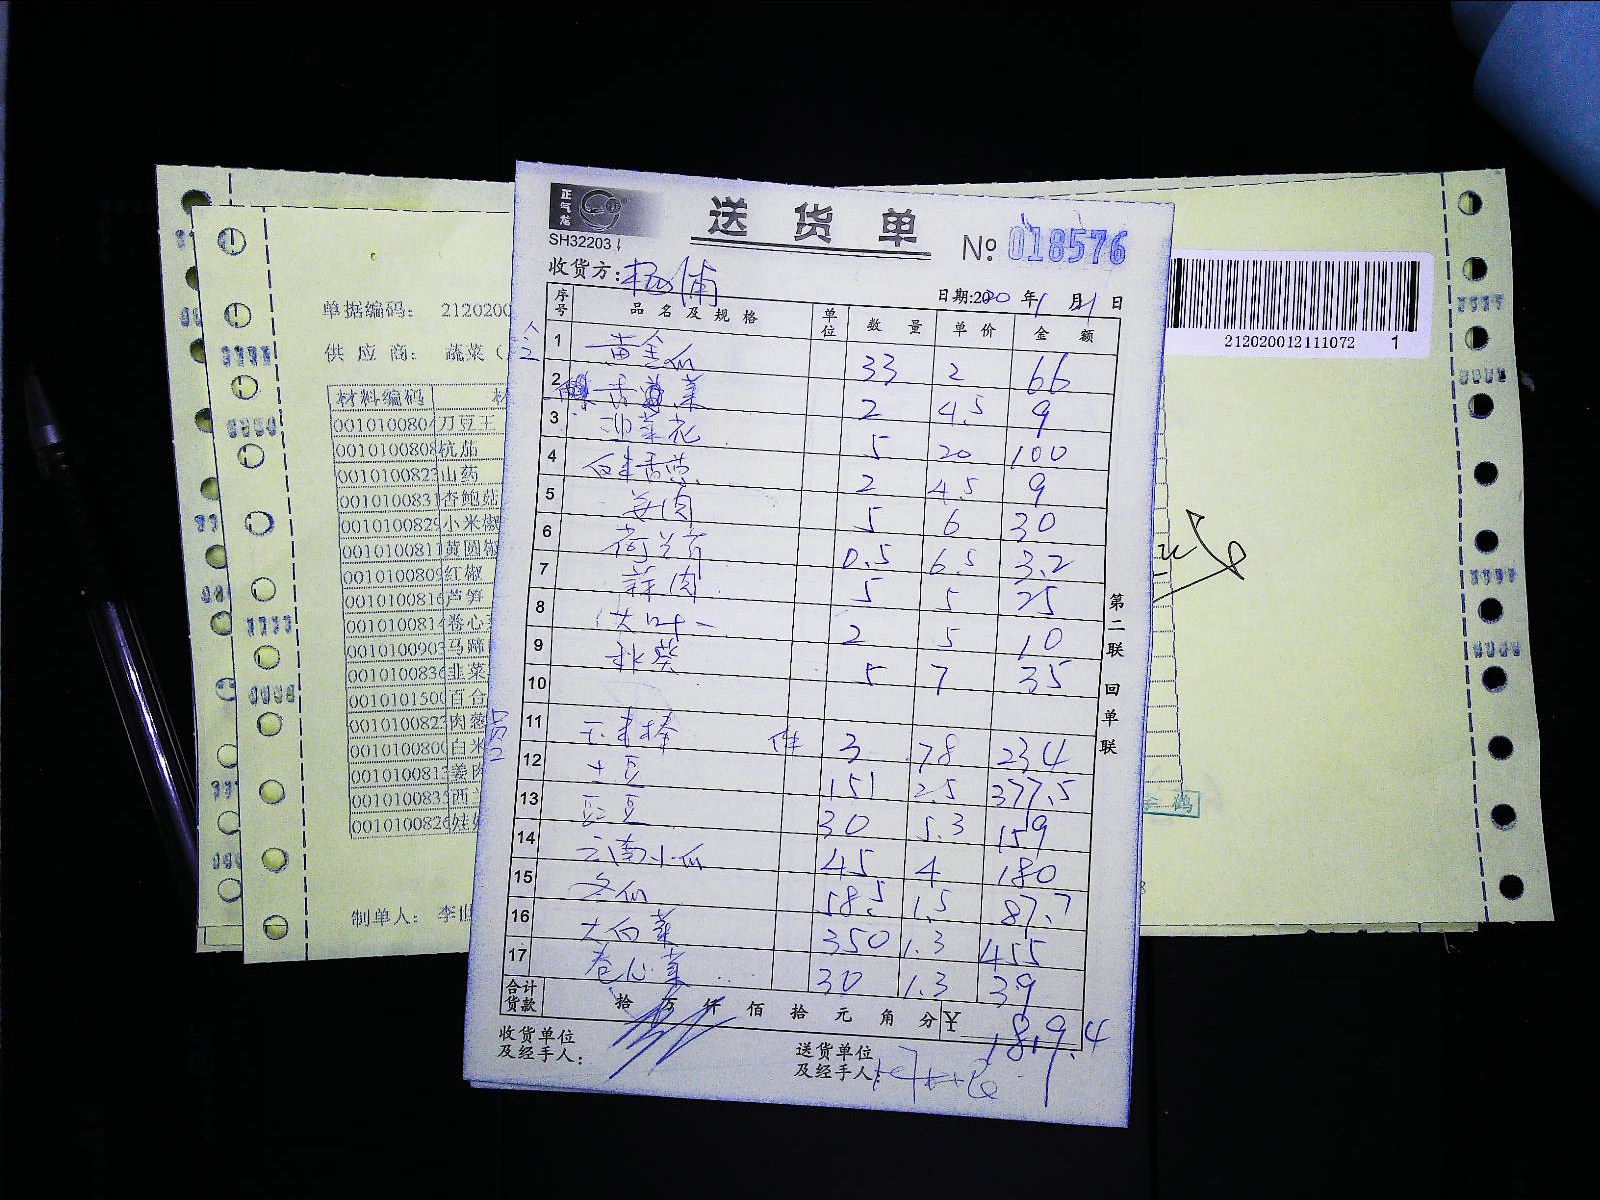 正气龙
SH32203
送货单
№ 018576
收货方: 杨浦
日期:2020 年 1 月 1 日
序号 品名及规格 单位 数量 单价 金额
1 黄金瓜 33 2 66
2 香菜 2 4.5 9
3 冰菜花 5 20 100
4 白米香芹 2 4.5 9
5 姜肉 5 6 30
6 荷兰芹 0.5 6.5 3.2
7 蒜肉 5 5 25
8 2 5 10
9 秋葵 5 7 35
10
11 玉米棒 件 3 78 234
12 土豆 151 2.5 377.5
13 豇豆 30 5.3 159
14 云南小瓜 45 4 180
15 冬瓜 58.5 1.5 87.7
16 大白菜 350 1.3 455
17 卷心菜 30 1.3 39
合计货款 拾 万 仟 佰 拾 元 角 分 ¥ 1819.4
收货单位及经手人:
送货单位及经手人:
第二联 回单联
单据编码: 2120200
供应商: 蔬菜(
材料编码 材
001010080 刀豆王
001010080 杭茄
001010082 山药
001010083 杏鲍菇
001010082 小米椒
001010081 黄圆椒
001010080 红椒
001010081 芦笋
001010081 卷心
001010090 马蹄
001010083 韭菜
001010150 百合
001010082 肉葱
001010080 白米
001010081 姜肉
001010083 西
001010082 娃
制单人: 李
212020012111072 1